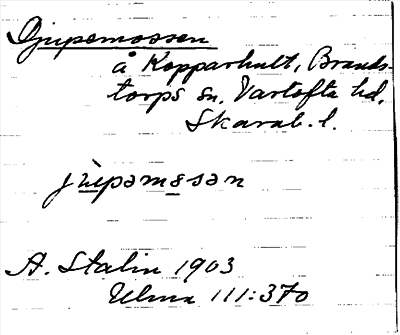 Djupamossen
å Kopparhult, Brands-
torps sn. Vartofta hd,
Skarab. l.
jùpəmɵsən
A. Stalin 1903
Ulma 111:370